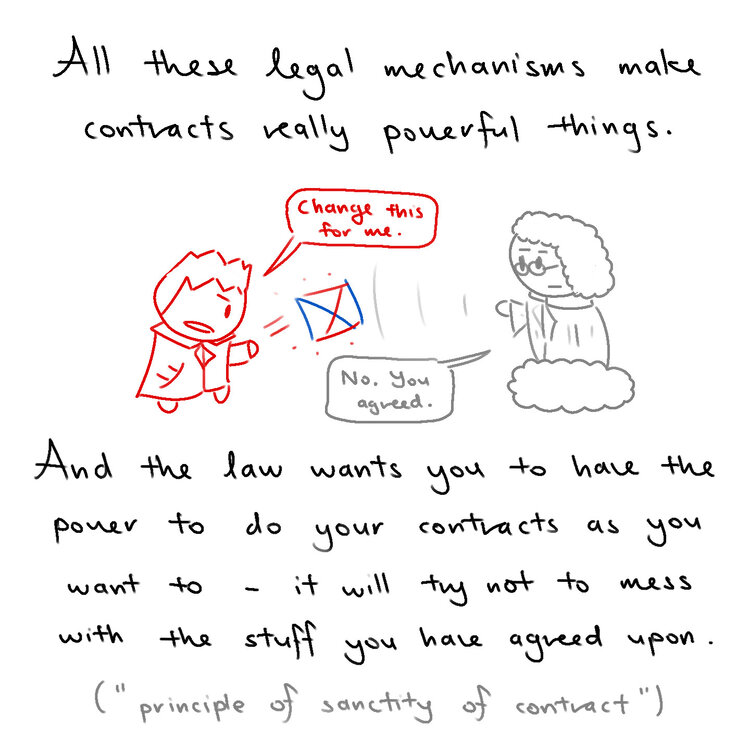 All these legal mechanisms make
contracts really powerful things.
Change this
for me.
No. You
agreed.
And the law wants you to have the
power to do your contracts as you
want to - it will try not to mess
with the stuff you have agreed upon.
("principle of sanctity of contract")